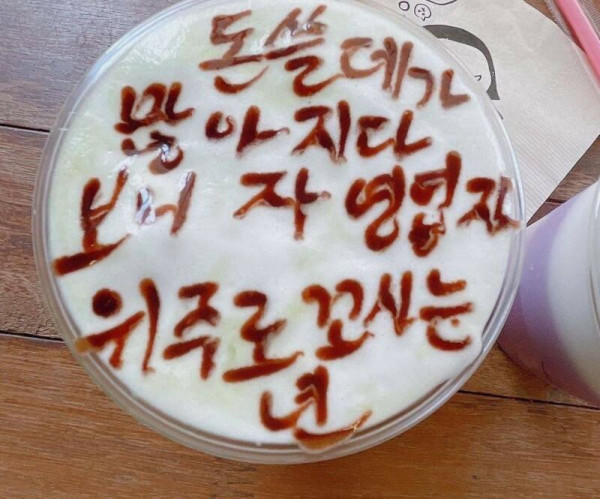 돈쓸데가
많아지다
보니 자영업자
위주로 꼬시는
년